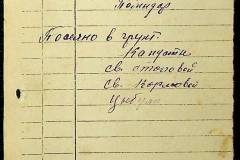 Помидор
Посеяно в грунт.
Капусти
св. столовой
св. Кормовой
Цибуля